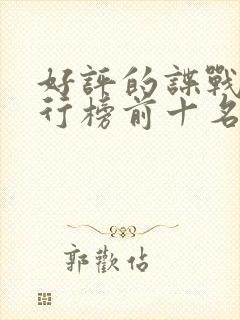 好評的諜戰
行榜前十名
郭歡佔